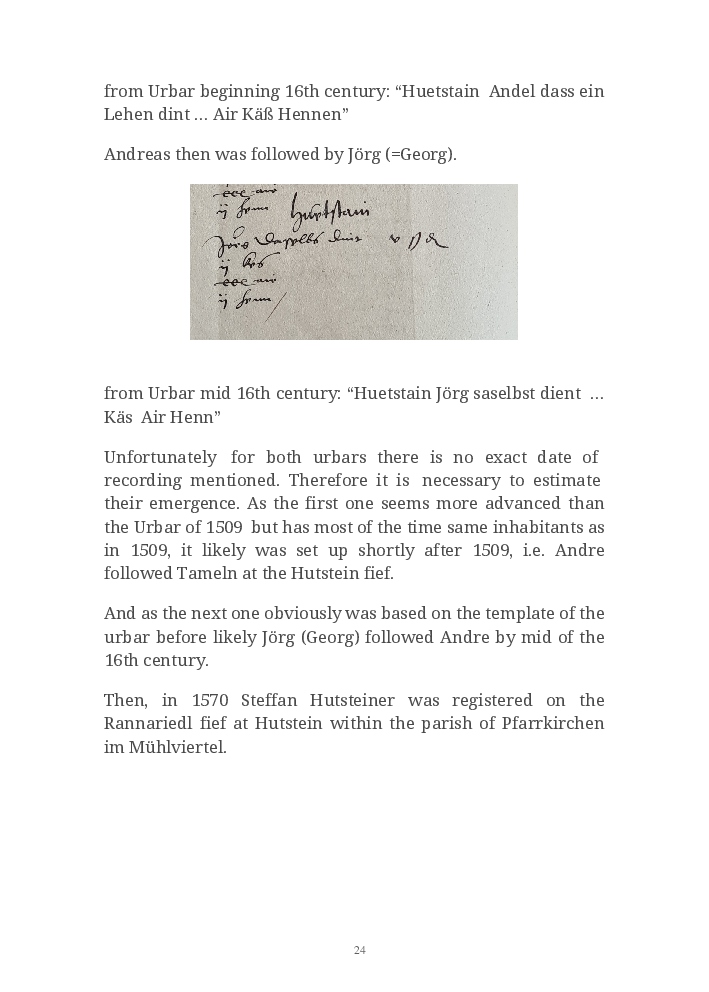 from Urbar beginning 16th century: “Huetstain Andel dass ein
Lehen dint ... Air Käß Hennen”
Andreas then was followed by Jörg (=Georg).
ccc air
ij henn
Huetstain
Jörg daselbs dint
ij kes
ccc air
ij henn
from Urbar mid 16th century: “Huetstain Jörg saselbst dient ...
Käs Air Henn”
Unfortunately for both urbars there is no exact date of
recording mentioned. Therefore it is necessary to estimate
their emergence. As the first one seems more advanced than
the Urbar of 1509 but has most of the time same inhabitants as
in 1509, it likely was set up shortly after 1509, i.e. Andre
followed Tameln at the Hutstein fief.
And as the next one obviously was based on the template of the
urbar before likely Jörg (Georg) followed Andre by mid of the
16th century.
Then, in 1570 Steffan Hutsteiner was registered on the
Rannariedl fief at Hutstein within the parish of Pfarrkirchen
im Mühlviertel.
24